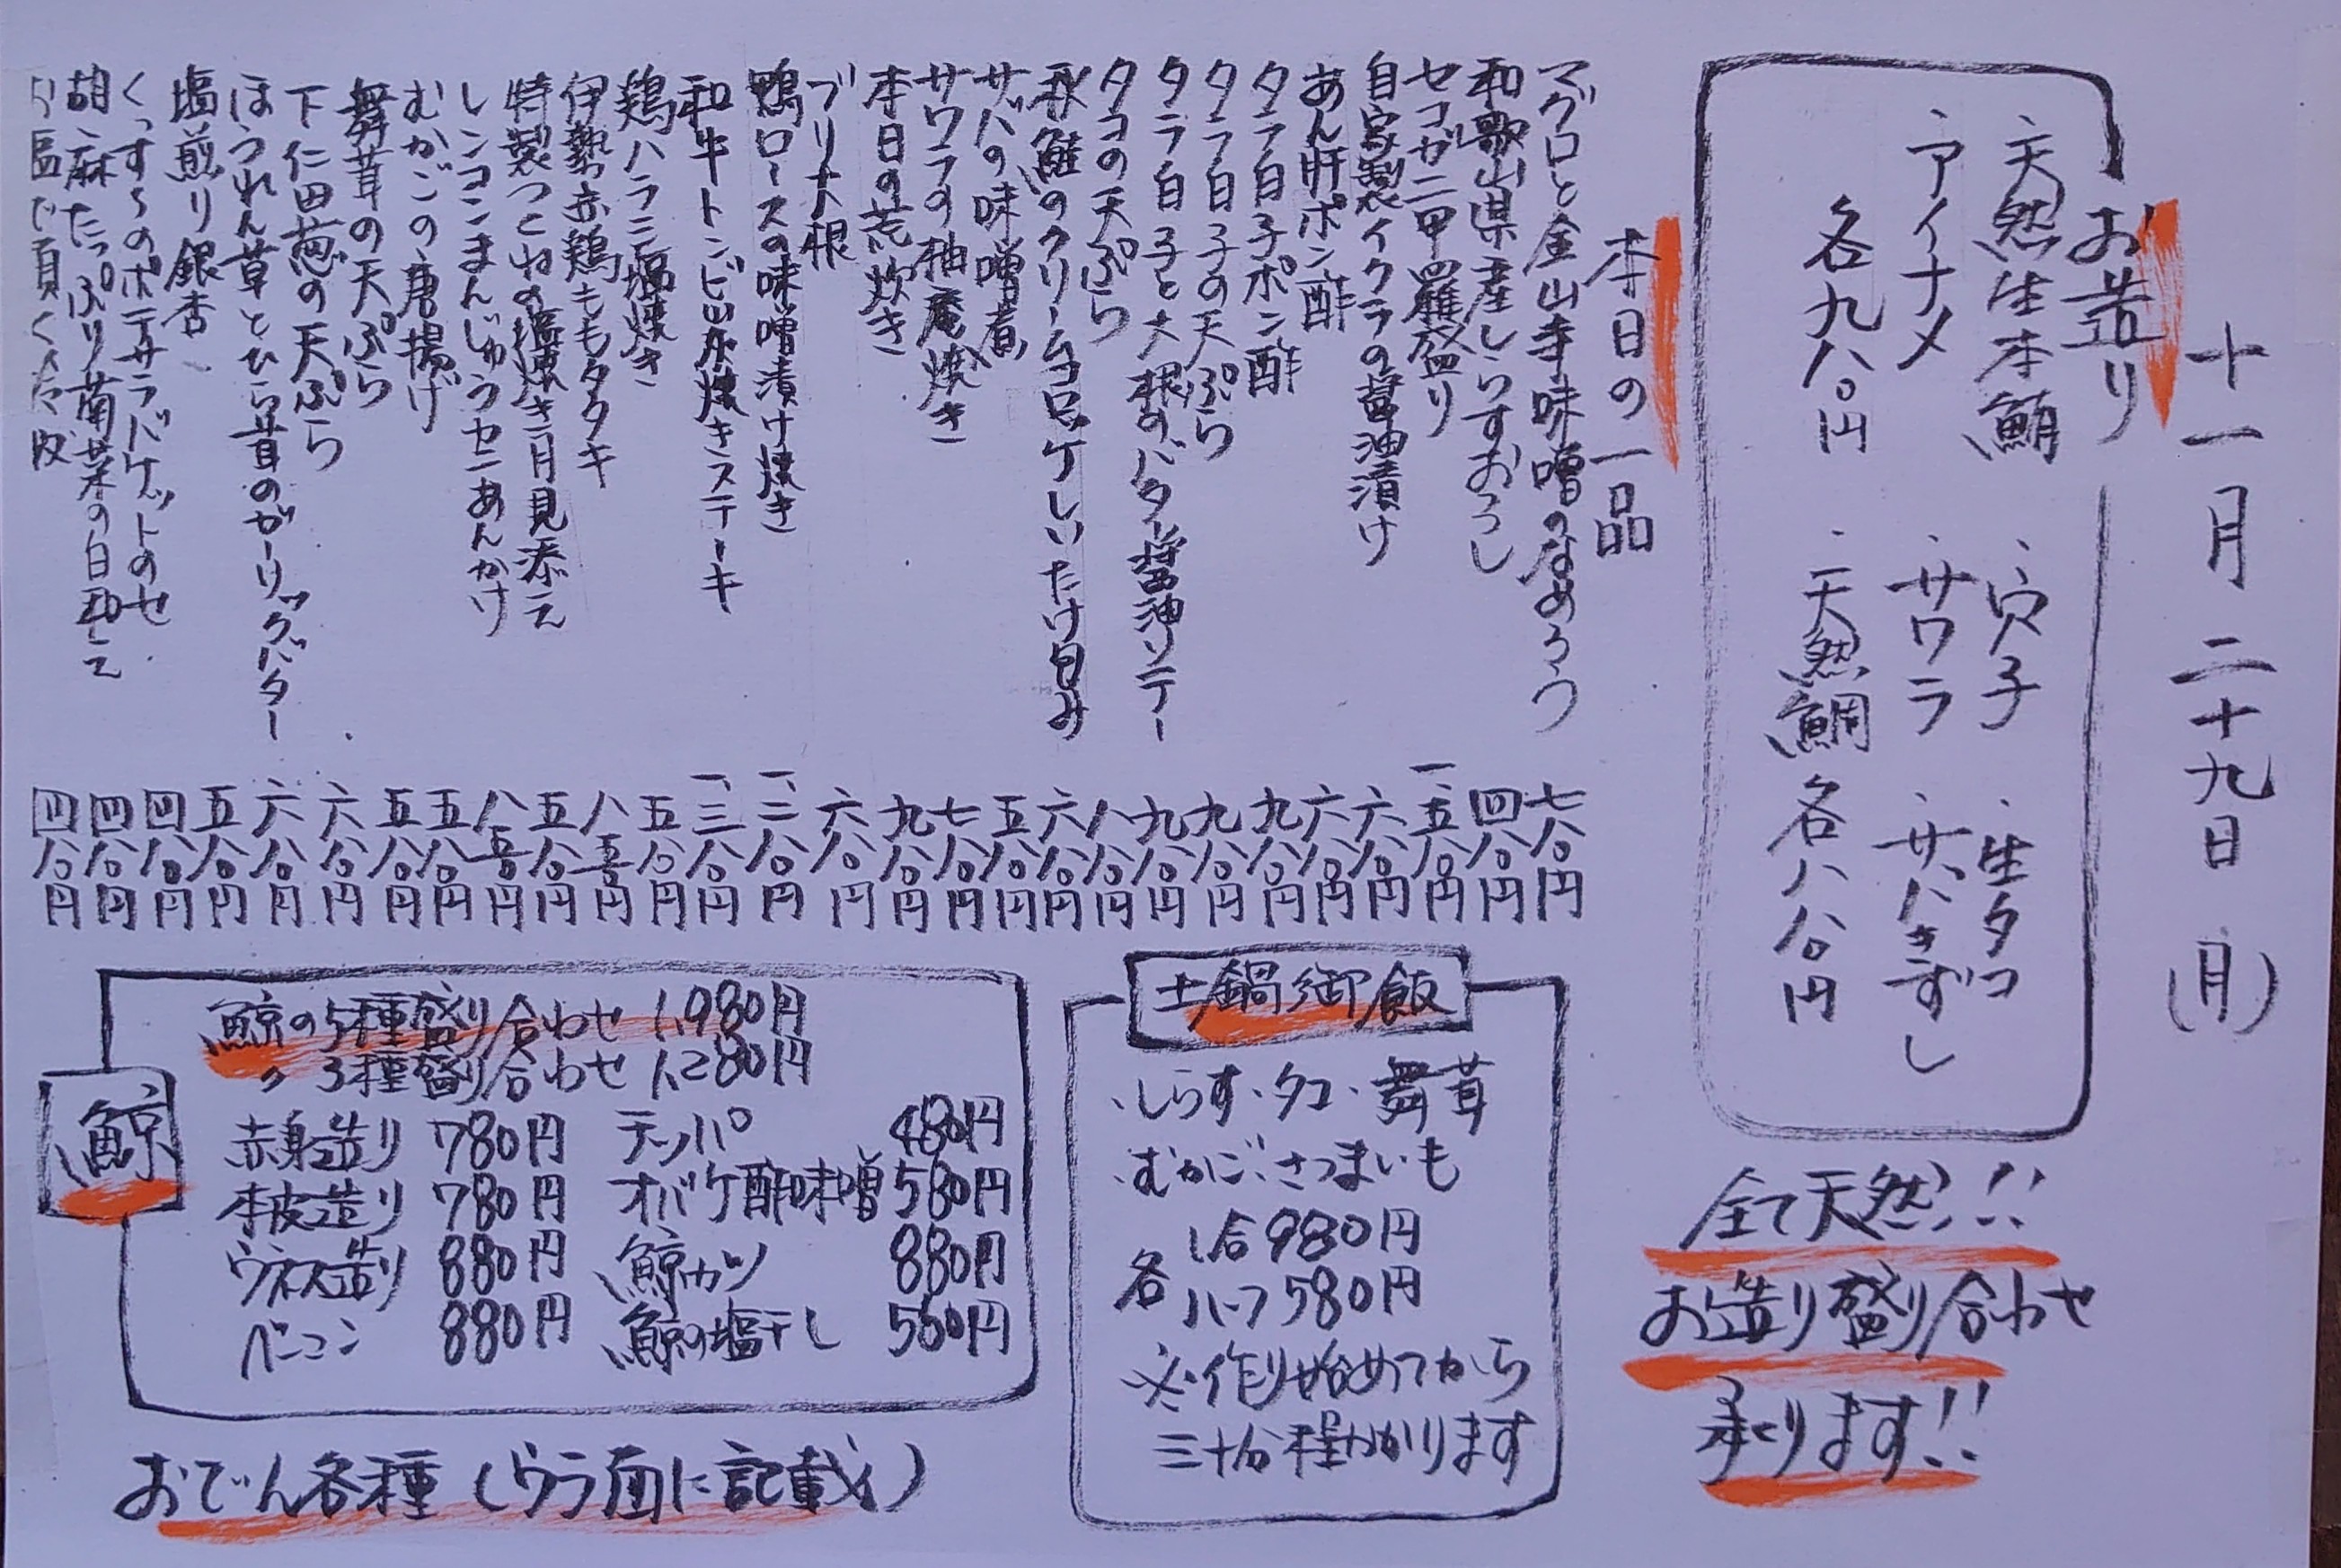 十一月二十九日(月)
お造り
・天然生本鮪 ・穴子 ・生タコ
・アイナメ ・サワラ ・サバきずし
各九八〇円 ・天然鯛 各八八〇円
全て天然!!
お造り盛り合わせ
承ります!!
本日の一品
マグロと金山寺味噌のなめろう 七八〇円
和歌山県産しらすおろし 四八〇円
セコガニ甲羅盛り 一、五八〇円
自家製イクラの醤油漬け 六八〇円
あん肝ポン酢 六八〇円
タラ白子ポン酢 九八〇円
タラ白子の天ぷら 九八〇円
タラ白子と大根のバター醤油ソテー 九八〇円
タコの天ぷら 八八〇円
秋鮭のクリームコロッケしいたけ包み 六八〇円
サバの味噌煮 五八〇円
サワラの柚庵焼き 七八〇円
本日の荒炊き 九八〇円
ブリ大根 六八〇円
鴨ロースの味噌漬け焼き 一、二八〇円
和牛トンビ炭焼きステーキ 一、三八〇円
鶏ハラミ塩焼き 五八〇円
伊勢赤鶏ももタタキ 八五〇円
特製つくねの塩焼き月見添え 五八〇円
レンコンまんじゅうカニあんかけ 八五〇円
むかごの唐揚げ 五八〇円
舞茸の天ぷら 五八〇円
下仁田葱の天ぷら 六八〇円
ほうれん草とひら茸のガーリックバター 六八〇円
塩煎り銀杏 五八〇円
くっす〜のポテサラバケットのせ 四八〇円
胡麻たっぷり菊菜の白和え 四八〇円
お塩で頂く冷奴 四八〇円
土鍋御飯
・しらす・タコ・舞茸
・むかご・さつまいも
各 1合980円
ハーフ580円
※作り始めてから
三十分程かかります
鯨
鯨の5種盛り合わせ 1,980円
〃 3種盛り合わせ 1,280円
赤身造り 780円 テッパ 480円
本皮造り 780円 オバケ酢味噌 580円
ウネス造り 880円 鯨カツ 880円
ベーコン 880円 鯨の塩干し 550円
おでん各種(ウラ面に記載)